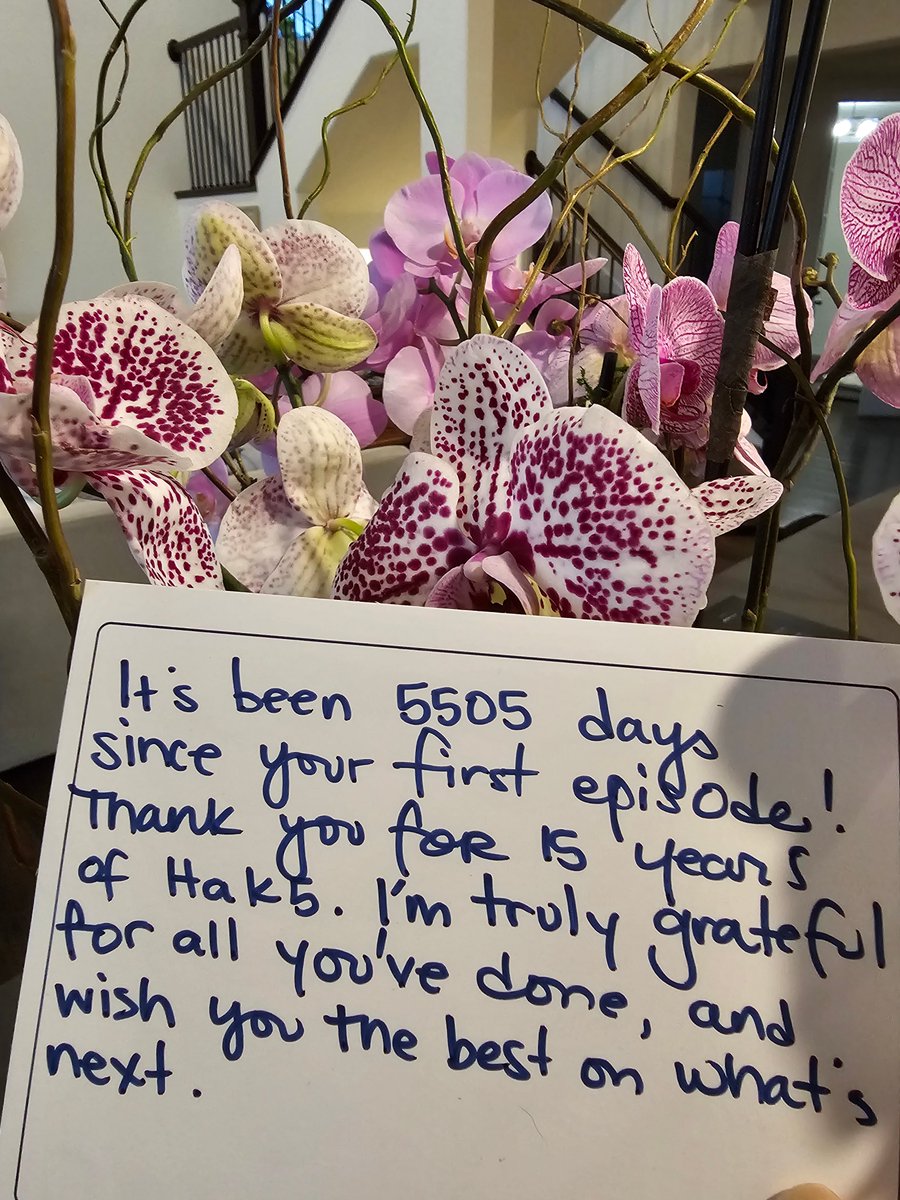 It's been 5505 days
since your first episode!
Thank you for 15 years
of Hak5. I'm truly grateful
for all you've done, and
wish you the best on what's
next.